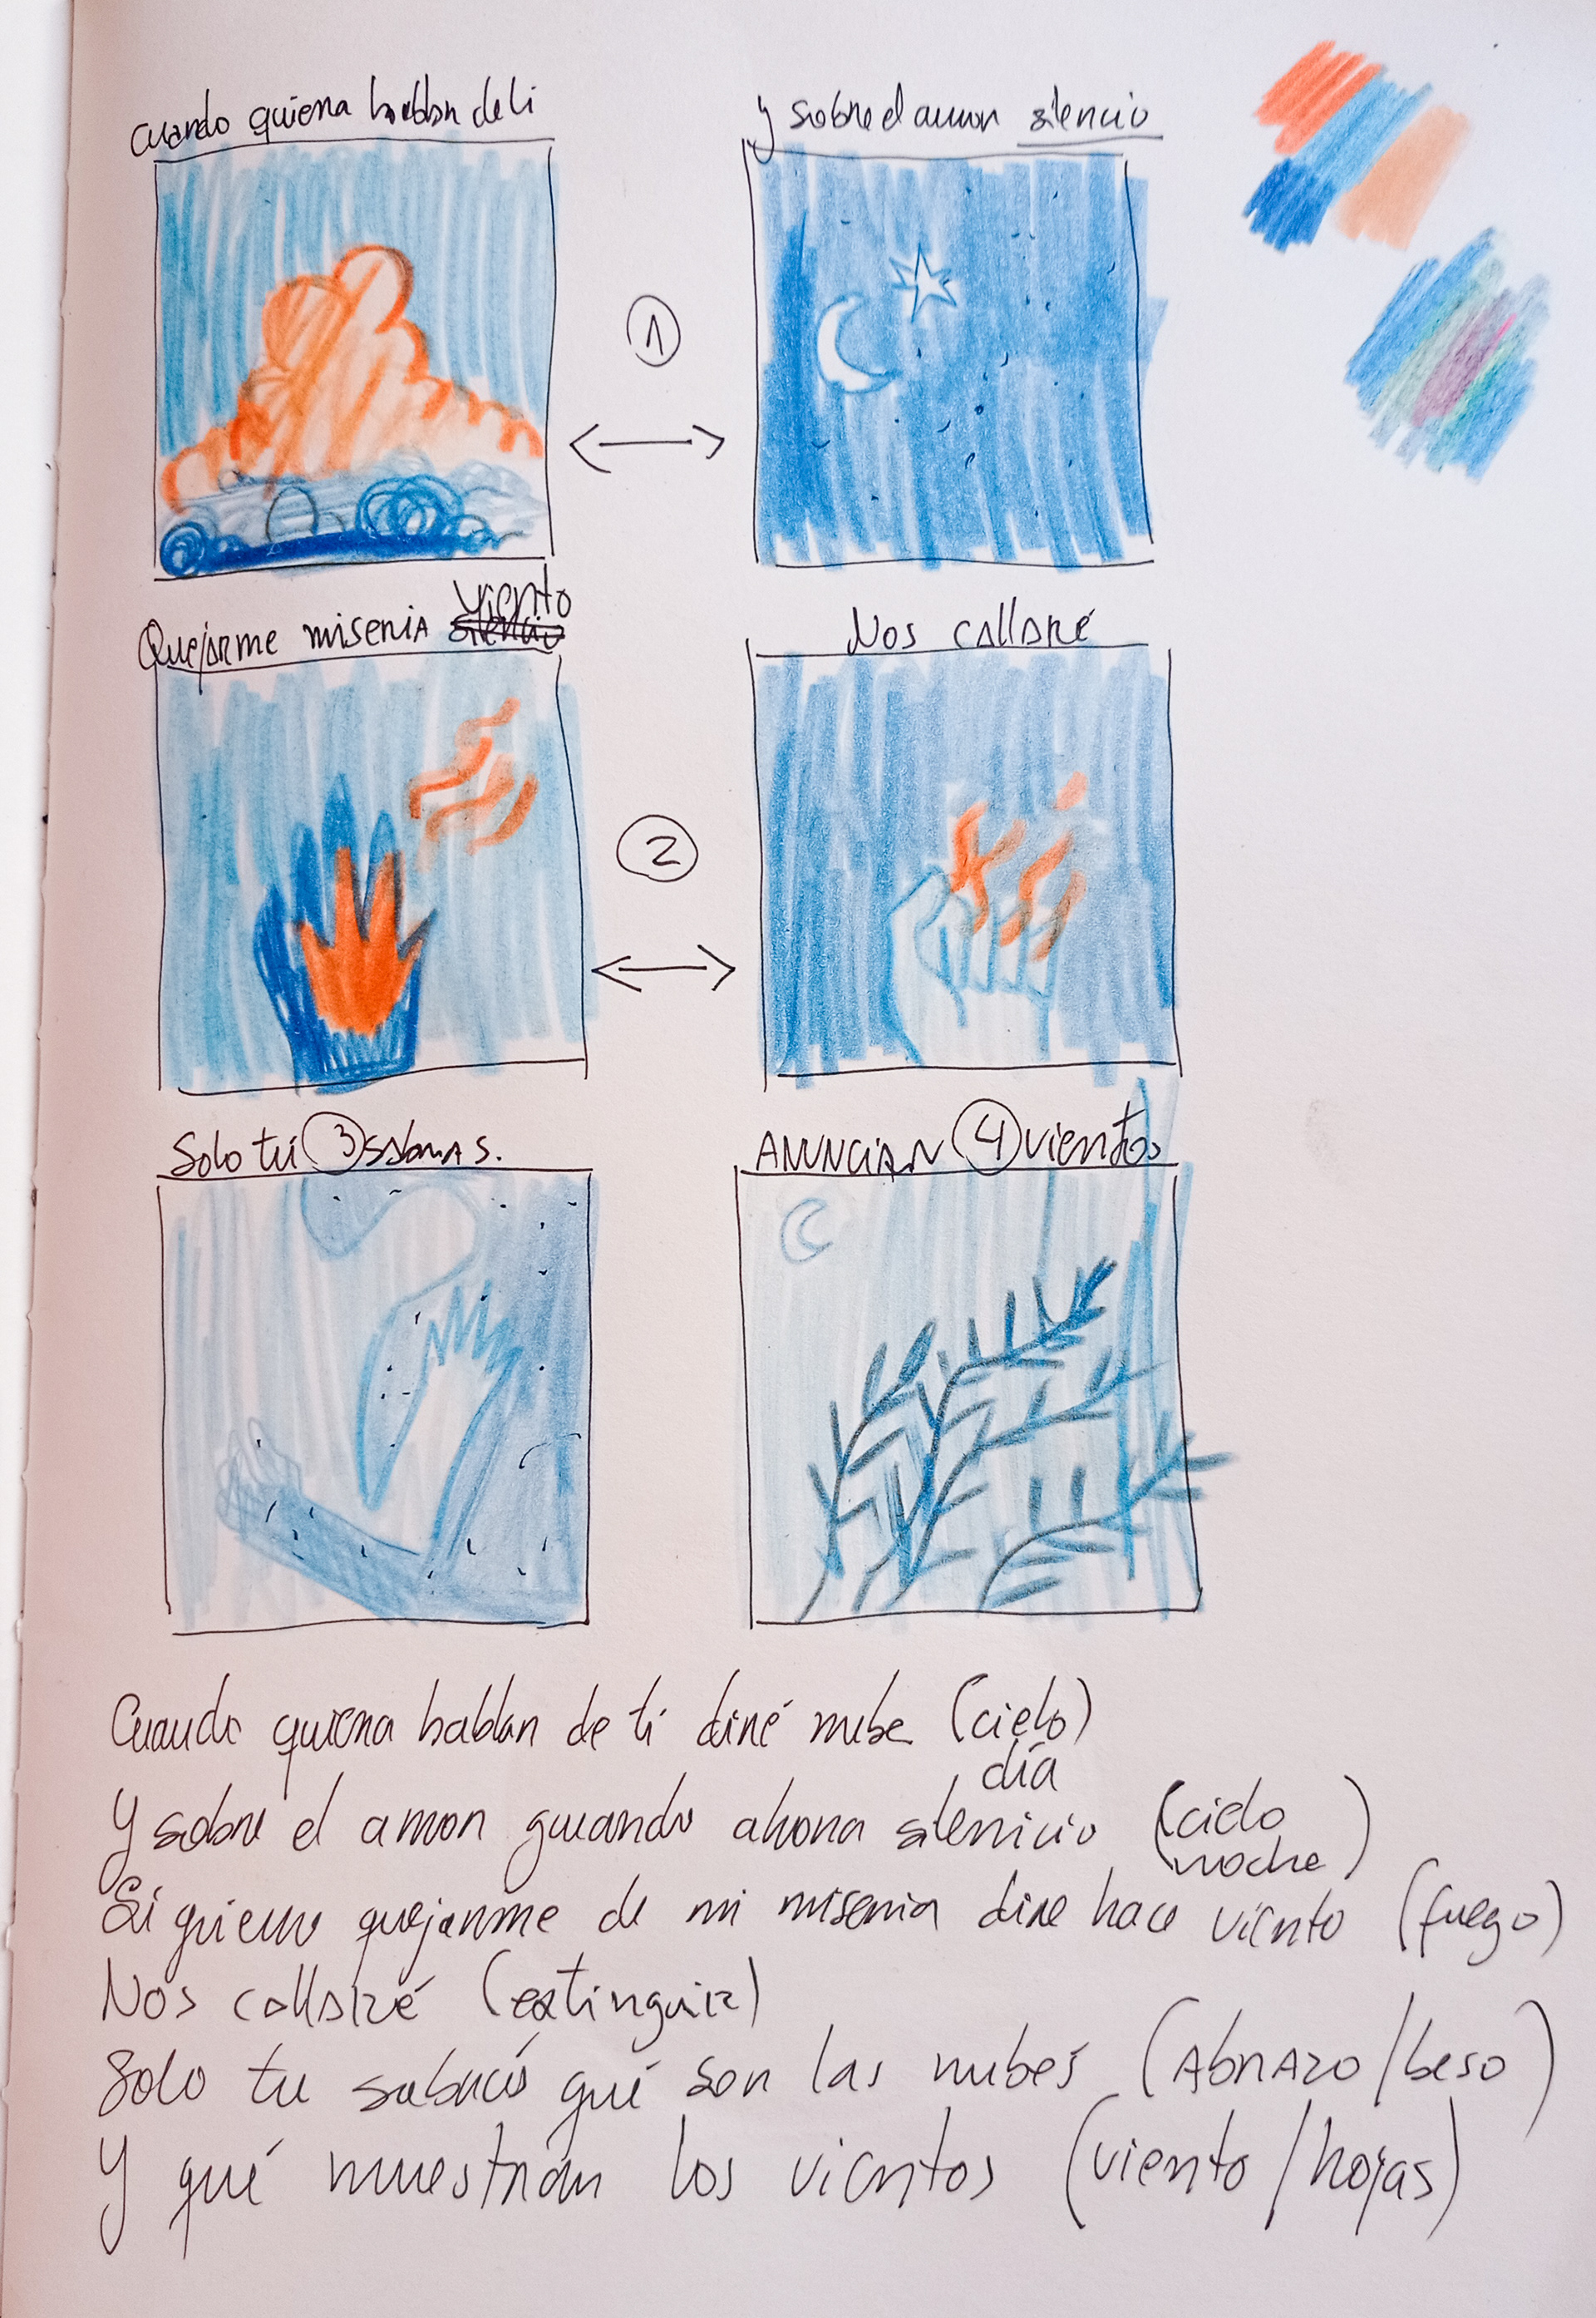 Cuando quiera hablar de ti
y sobre el amor silencio
1
Quejarme miseria viento
silencio
Nos callaré
2
Solo tú 3 sabrás.
ANUNCIAN 4 vientos
Cuando quiera hablar de ti diré nube (cielo)
día
Y sobre el amor guardando ahora silenicio (cielo
noche)
Si quiero quejarme de mi miseria dire hace viento (fuego)
Nos callaré (extinguir)
Solo tu sabrás qué son las nubes (Abrazo/beso)
Y qué muestran los vientos (viento/hojas)